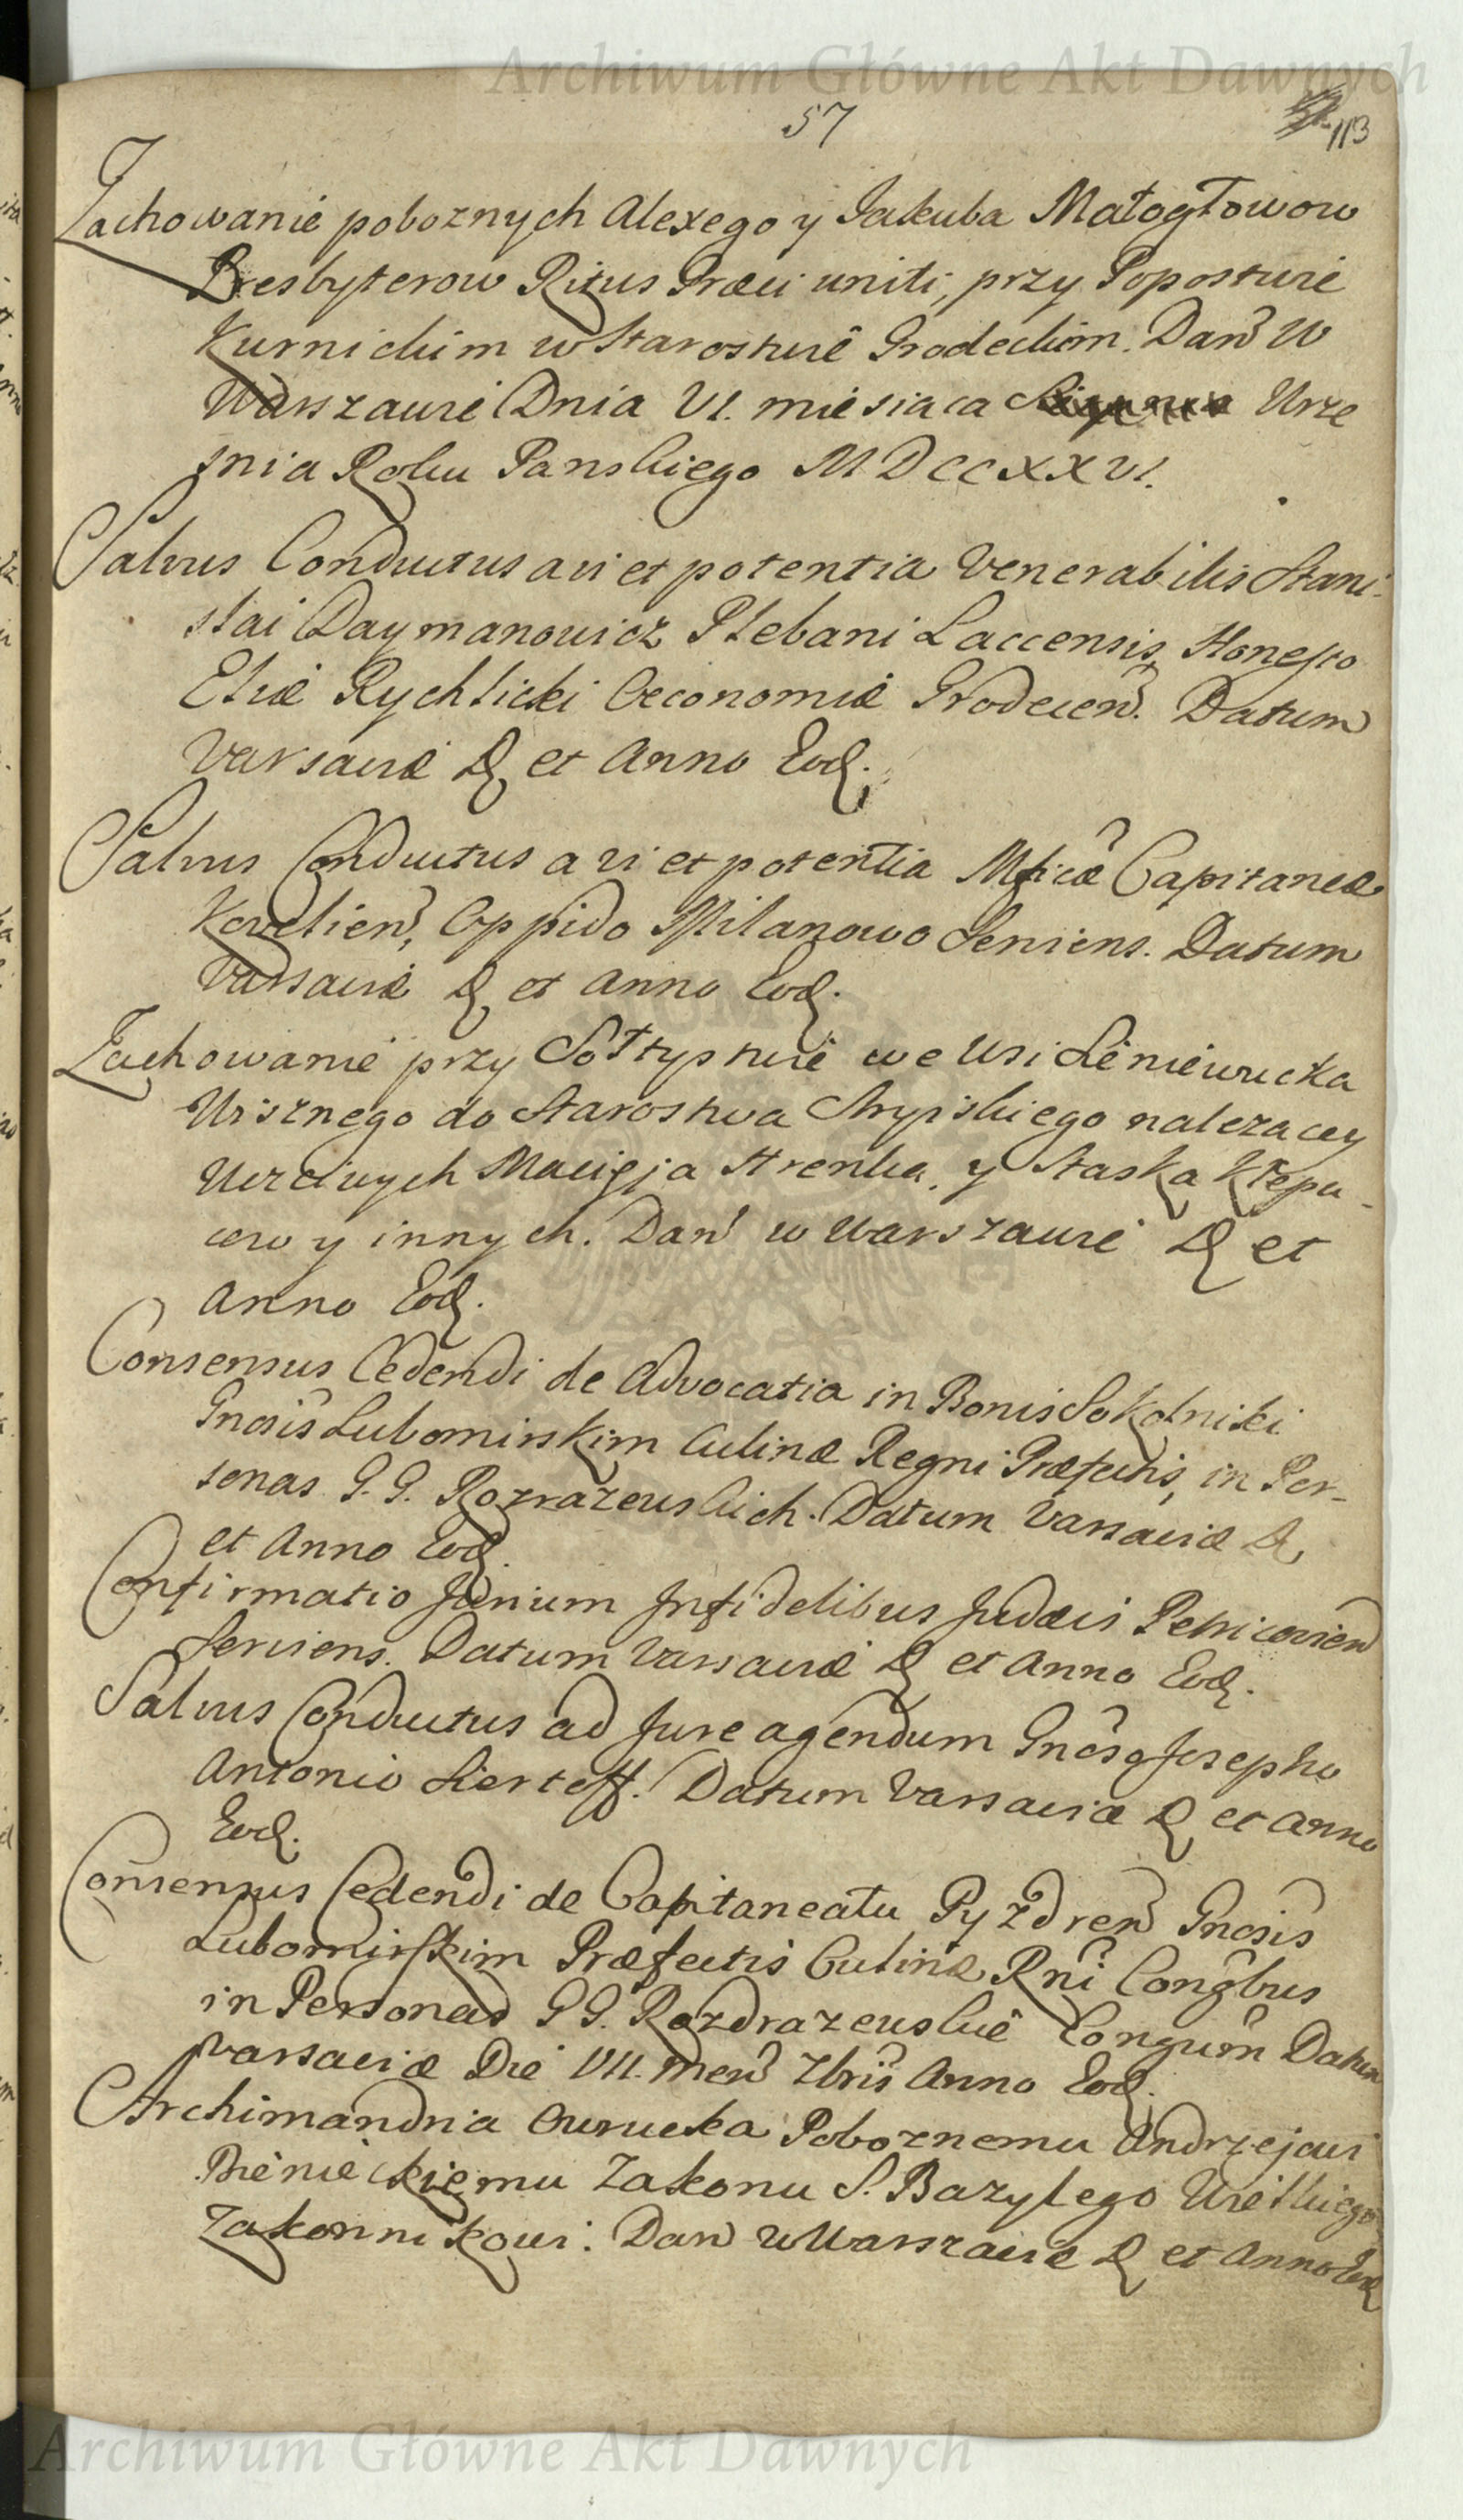 Archiwum Główne Akt Dawnych
57
113
Zachowanie poboznych Alexego y Jakuba Małogłowow
Presbyterow Ritus Græci uniti, przy Popostwie
Kurnickim w Starostwie Grodeckim. Dan w
Warszawie Dnia VI. miesiaca Wrze
snia Roku Panskiego MDCCXXVI.
Salvus Conductus a vi et potentia Venerabilis Stani-
slai Daymanowicz Plebani Laccensis, Honesto
Eliæ Rychlicki Oeconomiæ Grodecen. Datum
Varsaviæ D et Anno Eod.
Salvus Conductus a vi et potentia Mficæ Capitaneæ
Kovelien, Oppido Milanowo Serviens. Datum
Varsaviæ D et Anno Eod.
Zachowanie przy Sołtystwie we Wsi
do Starostwa Stryiskiego nalezacey
Uczciwych Macieja y Staska
y innych. Dan w Warszawie D et
Anno Eod.
Consensus Cedendi de Advocatia in Bonis Sokolniki
Gnosis Lubomirskim Culinæ Regni Præfectis, in Per-
sonas G.G. Rozrazewskich. Datum Varsaviæ D
et Anno Eod.
Confirmatio Jurium Infidelibus Judæis Petricovien
Serviens. Datum Varsaviæ D et Anno Eod.
Salvus Conductus ad Jure agendum Gnoso Josepho
Antonio Datum Varsaviæ D et Anno
Eod.
Consensus Cedendi de Capitaneatu Pyzdren Gnosis
Lubomirskim Præfectis Culinæ Rni Congbus
in Personas GG. Rozdrazewskie Congum Datum
Varsaviæ Die VII. Men 7bris Anno Eod.
Archimandria Owrucka Poboznemu Andrzejowi
Bienieckiemu Zakonu S. Bazylego Wielkiego
Zakonnikowi. Dan w Warszawie D et Anno Eod
Archiwum Główne Akt Dawnych